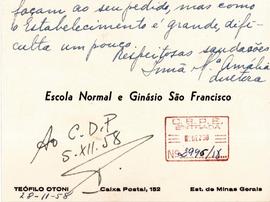 façam ao seu pedido, mas como
o Estabelecimento é grande, difi-
culta um pouco.
Respeitosas saudações
Irmã Mª Amália
diretora
Escola Normal e Ginásio São Francisco
Ao C. D. P
5-XII-58
C.B.P.E.
ENTRADA
TEÓFILO OTONI
Caixa Postal, 152
Est. de Minas Gerais
28-11-58